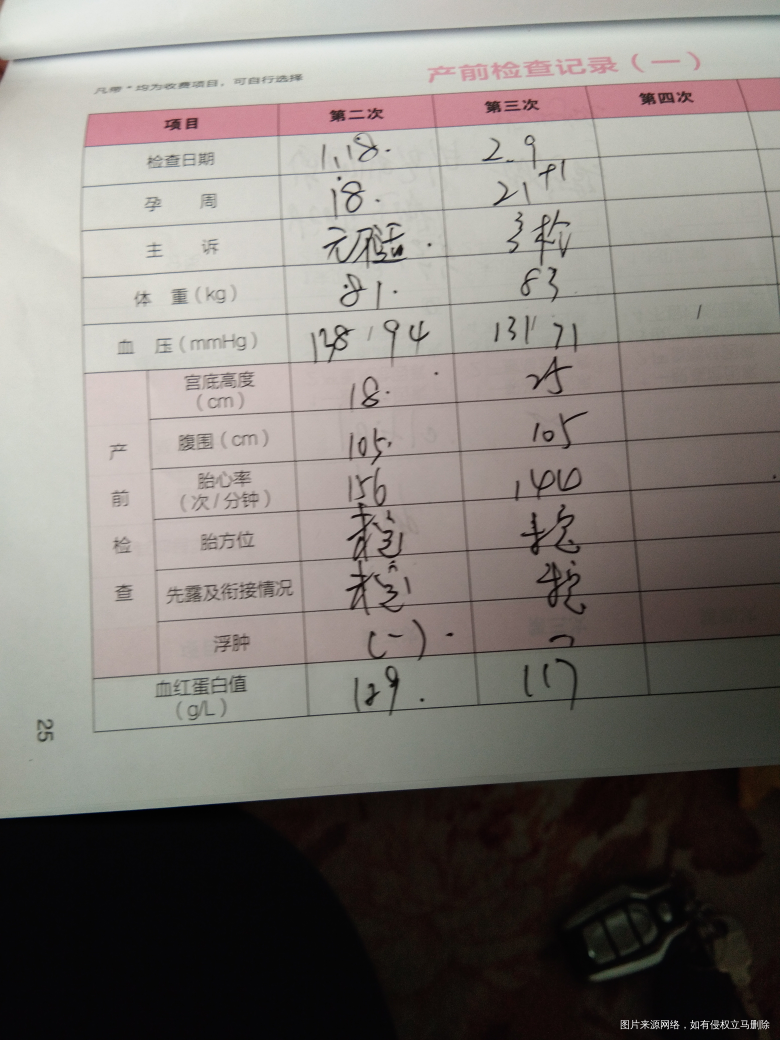 凡带*均为收费项目，可自行选择
产前检查记录（一）
项目 第二次 第三次 第四次
检查日期 1.18. 2.9
孕周 18. 21+1
主诉 无不适.
体重(kg) 81. 83
血压(mmHg) 128/94 131/71 /
产前检查
宫底高度(cm) 18. 25
腹围(cm) 105. 105
胎心率(次/分钟) 156 140
胎方位 未定 未定
先露及衔接情况 未定 未定
浮肿 (-). -
血红蛋白值(g/L) 129. 117
25
图片来源网络，如有侵权立马删除